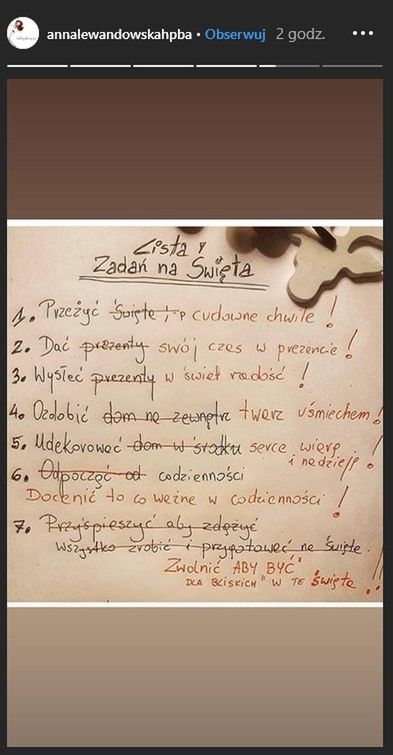 annalewandowskahpba • Obserwuj 2 godz.
Lista
Zadań na Święta
1. Przeżyć Święta i cudowne chwile!
2. Dać prezenty swój czas w prezencie!
3. Wysłać prezenty w świat radość!
4. Ozdobić dom na zewnątrz twarz uśmiechem!
5. Udekorować dom w środku serce wiarą
i nadzieją!
6. Odpocząć od codzienności
Docenić to co ważne w codzienności!
7. Przyśpieszyć aby zdążyć
wszystko zrobić i przygotować na Święta.
Zwolnić ABY BYĆ"
DLA BLISKICH" W TE Święta!!